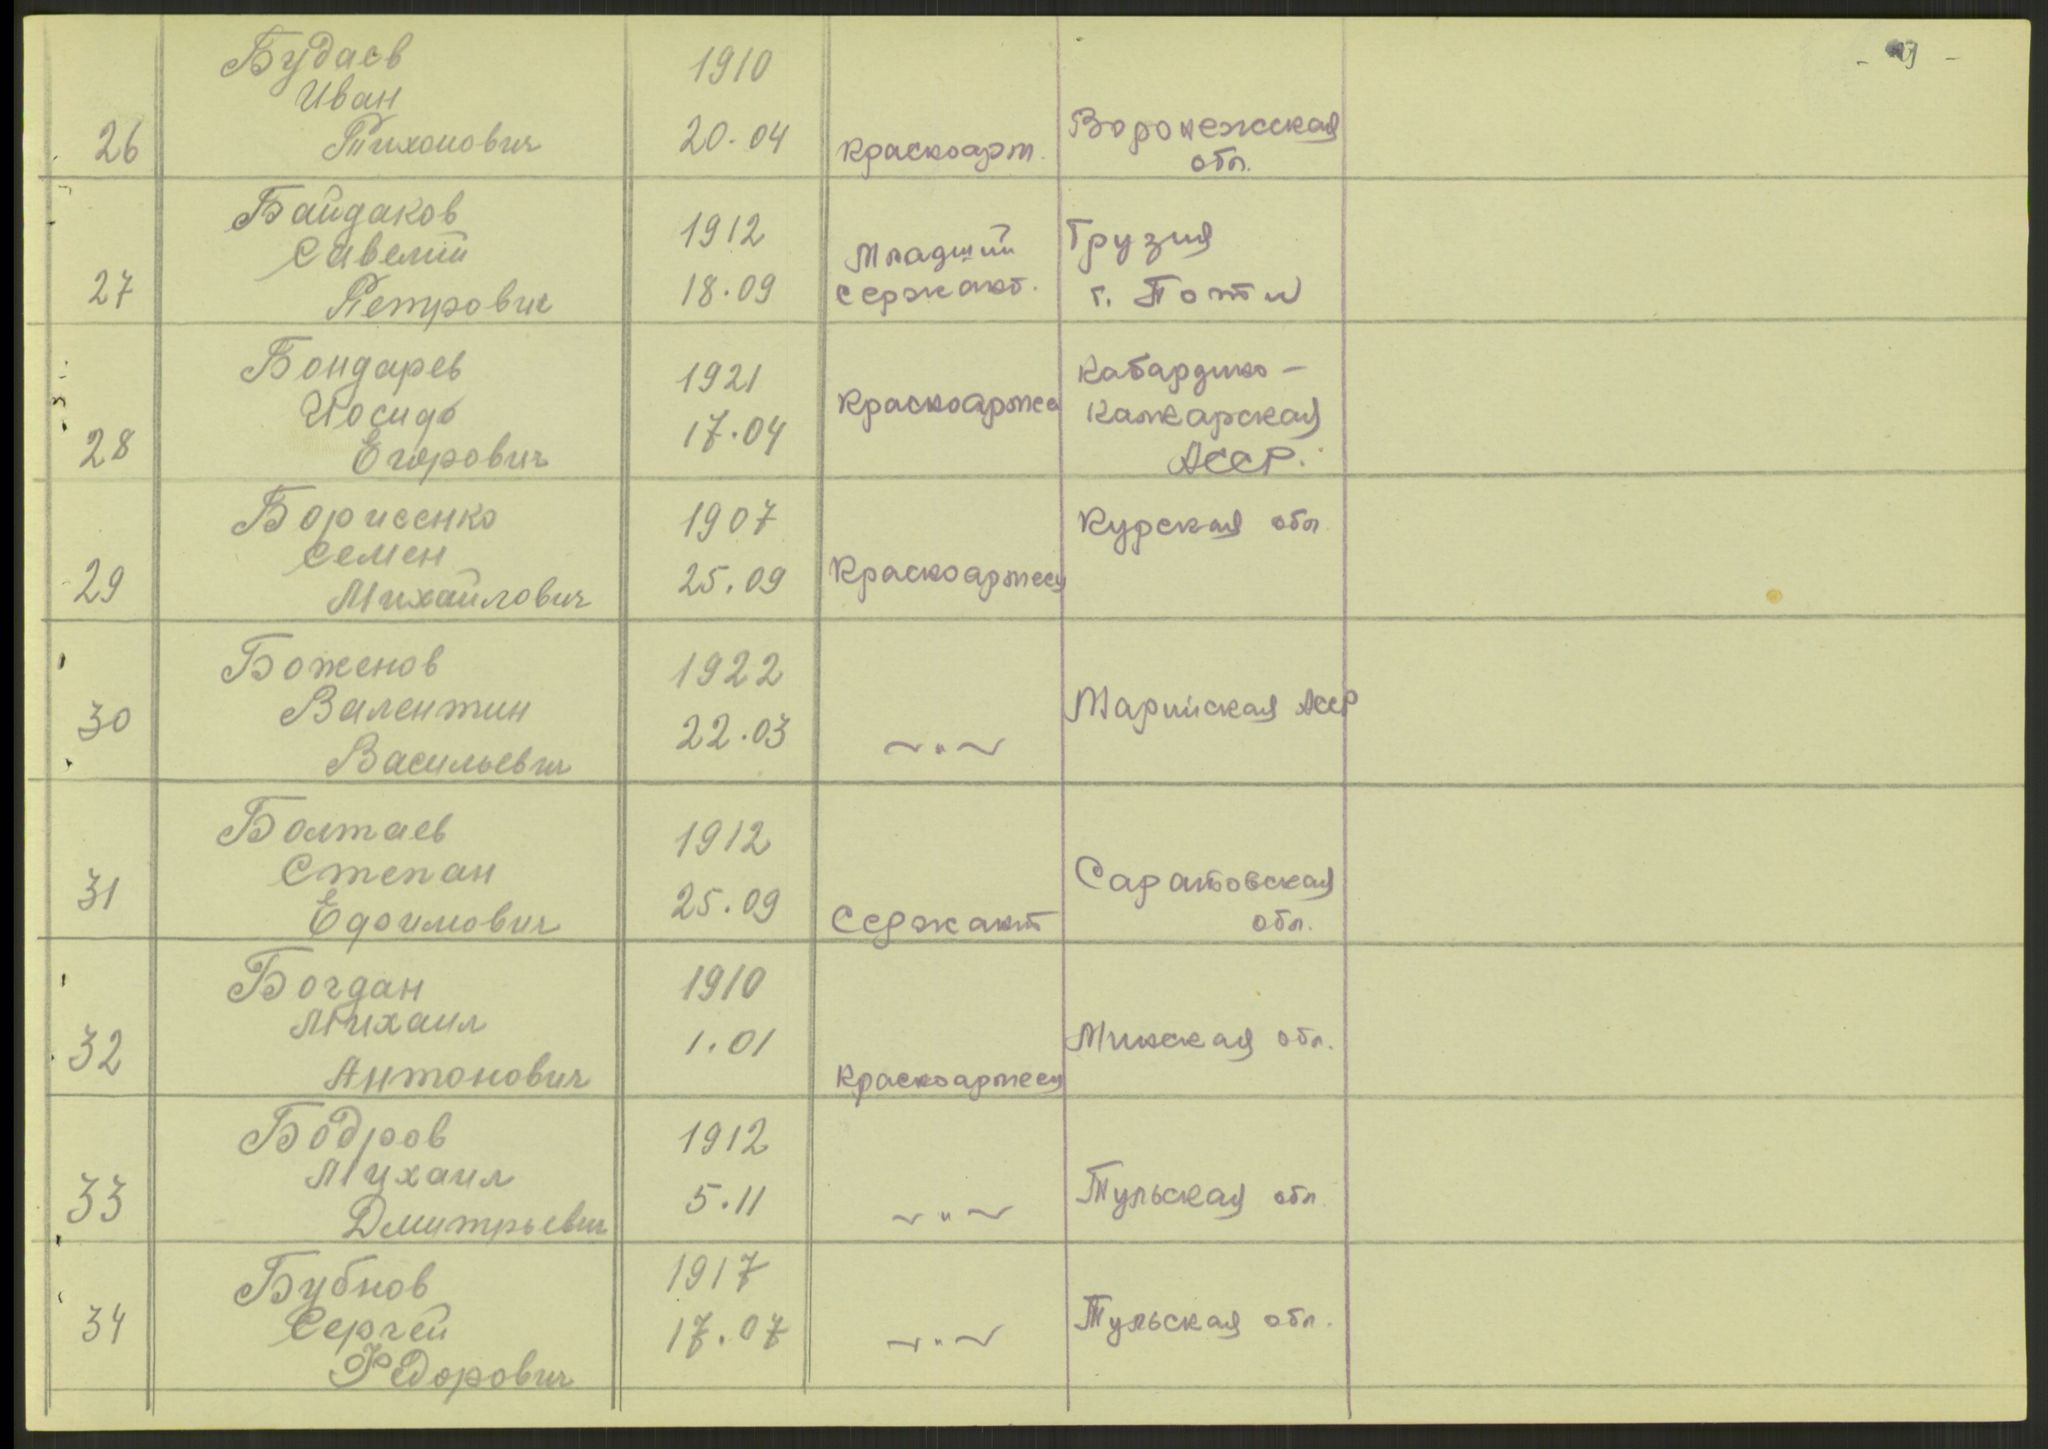 26
Будаев
Иван
Тихонович
1910
20.04
Красноарм.
Воронежская
обл.
27
Байдаков
Савелий
Петрович
1912
18.09
Младший
Сержант.
Грузия
г. Поти
28
Бондарев
Иосиф
Егорович
1921
17.04
Красноармее
Кабардино-
Балкарская
АССР.
29
Борисенко
Семен
Михайлович
1907
25.09
Красноармеец
Курская обл
30
Боженов
Валентин
Васильевич
1922
22.03
~"~
Марийская АССР
31
Болтаев
Степан
Ефимович
1912
25.09
Сержант
Саратовская
обл.
32
Богдан
Михаил
Антонович
1910
1.01
Красноармеец
Минская обл.
33
Бодров
Михаил
Дмитрьевич
1912
5.11
~"~
Тульская обл
34
Бубнов
Сергей
Федорович
1917
17.07
~"~
Тульская обл.